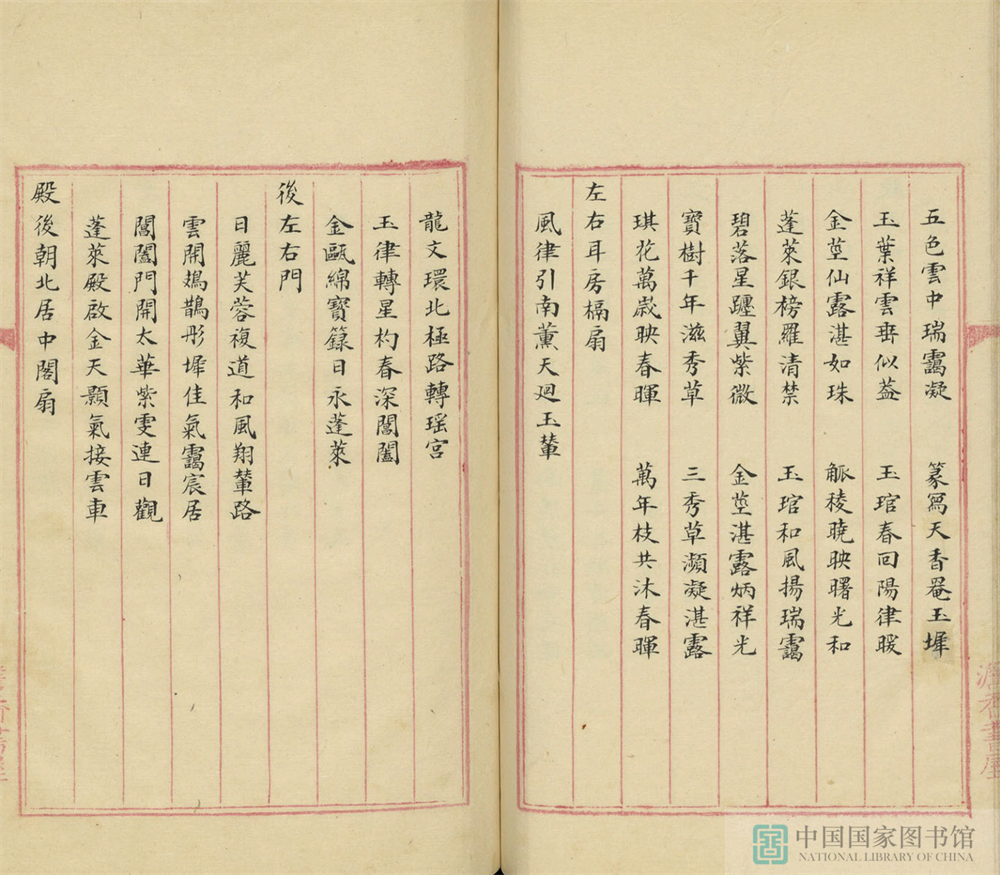 五色雲中瑞靄凝 篆冩天香罨玉墀
玉葉祥雲垂似葢 玉琯春回陽律暖
金莖仙露湛如珠 觚稜曉映曙光和
蓬萊銀榜羅清禁 玉琯和風揚瑞靄
碧落星躔翼紫微 金莖湛露炳祥光
寶樹千年滋秀草 三秀草瀕凝湛露
琪花萬歲映春暉 萬年枝共沐春暉
左右耳房槅扇
風律引南薰天廻玉輦
龍文環北極路轉瑶宮
玉律轉星杓春深閶闔
金甌綿寶籙日永蓬萊
後左右門
日麗芙蓉複道和風翔輦路
雲開鳷鵲彤墀佳氣靄宸居
閶闔門開太華紫雯連日觀
蓬萊殿啟金天顥氣接雲車
殿後朝北居中閣扇
香書屋
中国国家图书馆
NATIONAL LIBRARY OF CHINA